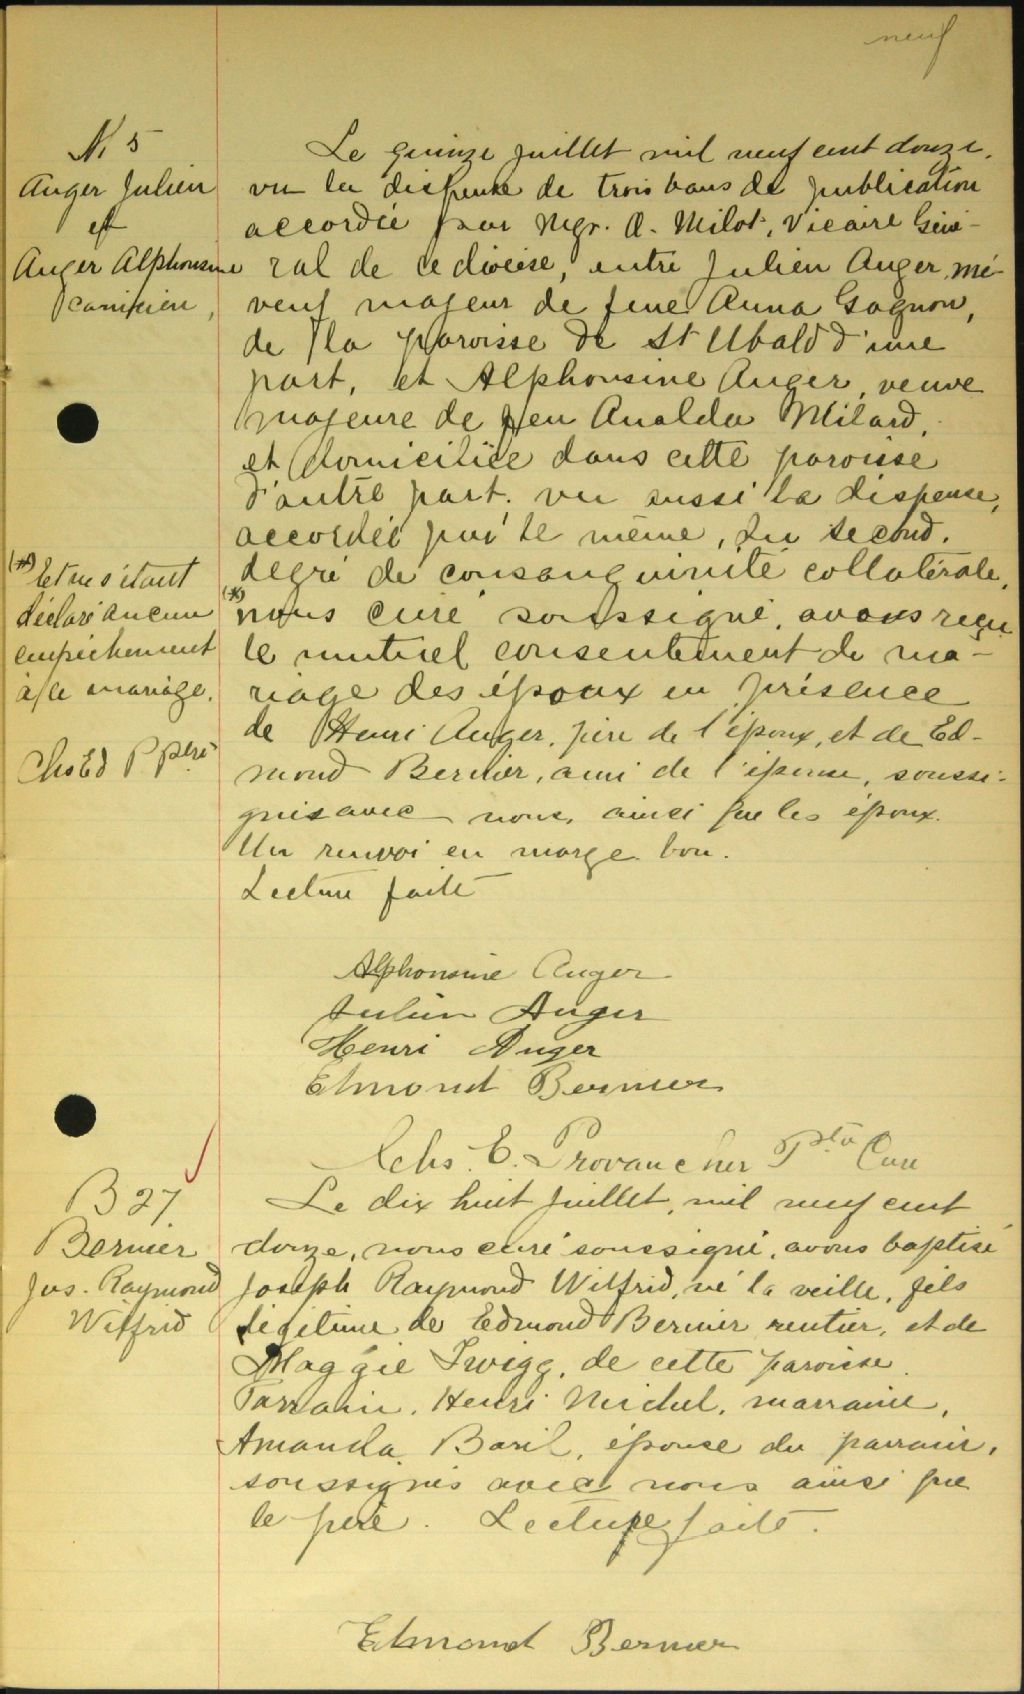 neuf
N. 5
Auger Julien
et
Auger Alphonsine
canicien,
Le quinze juillet mil neuf cent douze,
vu la dispense de trois bans de publication
accordée par Mgr. A. Milot, Vicaire Géné-
ral de ce diocèse, entre Julien Auger, mé-
veuf majeur de feue Anna Gagnon,
de la paroisse de St Ubald d'une
part, et Alphonsine Auger, veuve
majeure de feu Milard,
et domiciliée dans cette paroisse
d'autre part; vu aussi la dispense,
accordée par le même, du second.
degré de consanguinité collatérale,
(*) nous curé soussigné, avons reçu
le mutuel consentement de ma-
riage des époux en présence
de Henri Auger, père de l'époux, et de Ed-
mond Bernier, ami de l'épouse, soussi-
gnés avec nous, ainsi que les époux.
Un renvoi en marge bon.
Lecture faite
(*) Et ne s'étant
déclaré aucun
empêchement
à ce mariage.
Chs Ed P ptre
Alphonsine Auger
Julien Auger
Henri Auger
Edmond Bernier
Chs. E. Provancher Ptre Curé
B 27
Bernier
Jos. Raymond
Wilfrid
Le dix huit juillet, mil neuf cent
douze, nous curé soussigné, avons baptisé
Joseph Raymond Wilfrid, né la veille, fils
légitime de Edmond Bernier rentier, et de
Maggie Twigg, de cette paroisse.
Parrain, Henri Michel, marraine,
Amanda Baril, épouse du parrain,
soussignés avec nous ainsi que
le père. Lecture faite.
Edmond Bernier